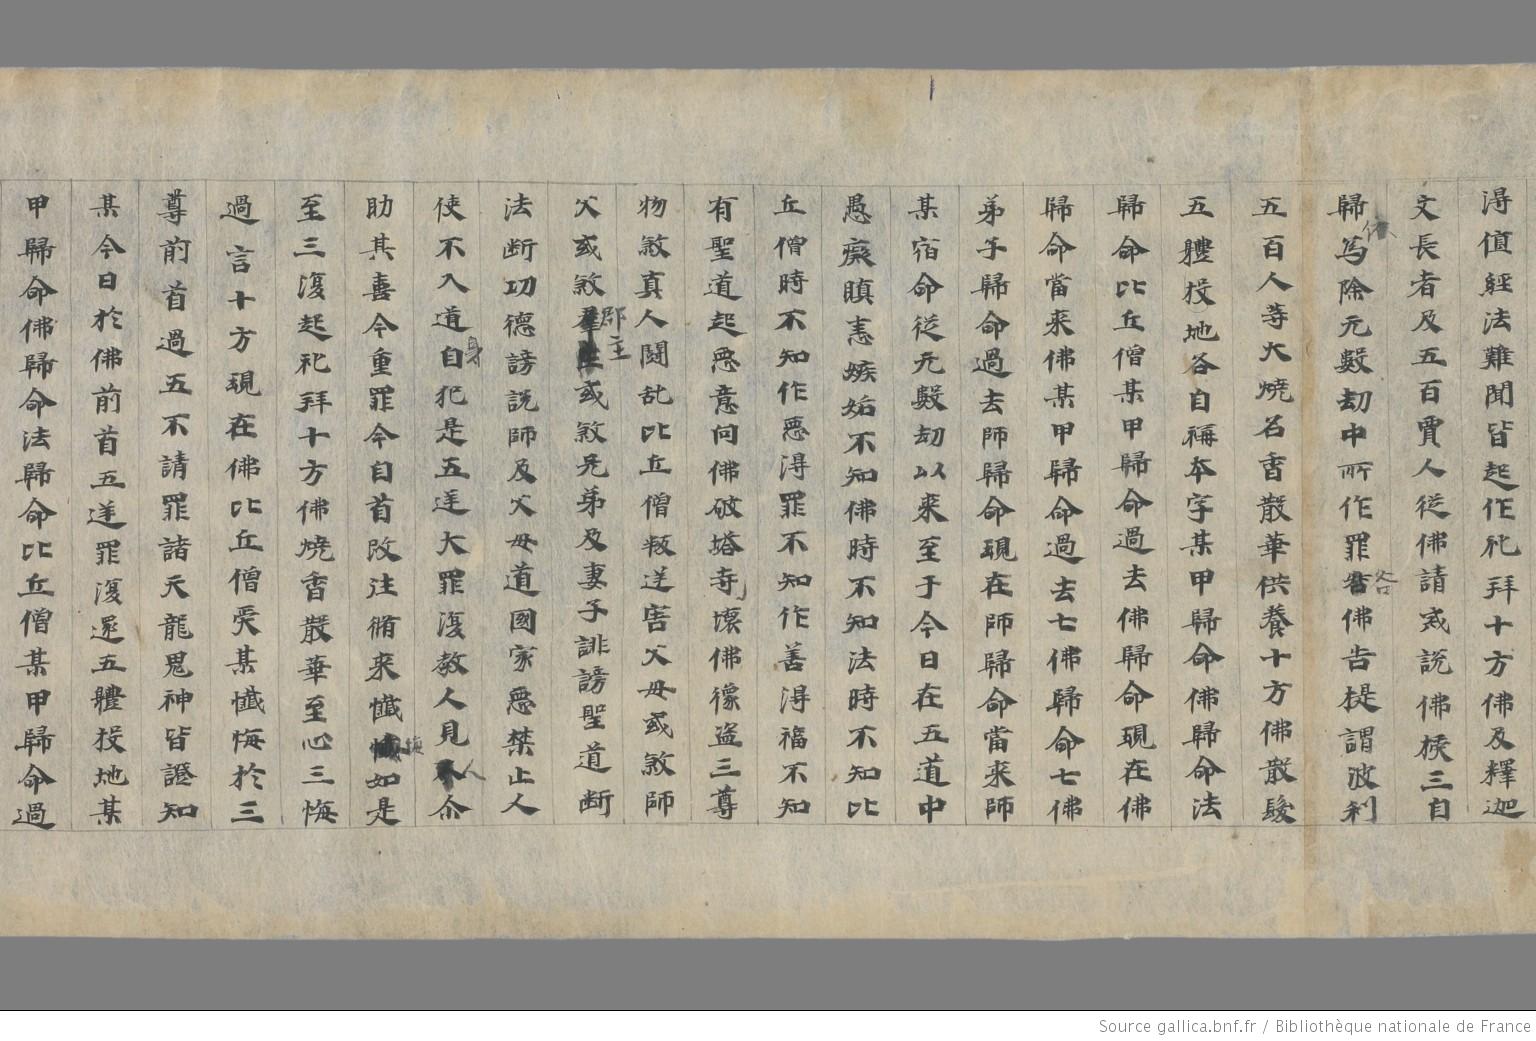 得值經法難聞皆起作礼拜十方佛及釋迦
文長者及五百賈人從佛請戒說佛授三自
歸為除无數劫中所作罪各佛告提謂波利
五百人等大燒名香散華供養十方佛散髮
五體投地各自稱本字某甲歸命佛歸命法
歸命比丘僧某甲歸命過去佛歸命現在佛
歸命當來佛某甲歸命過去七佛歸命七佛
弟子歸命過去師歸命現在師歸命當來師
某宿命從无數劫以來至于今日在五道中
愚癡瞋恚嫉妬不知佛時不知法時不知比
丘僧時不知作惡得罪不知作善得福不知
有聖道起惡意向佛破塔寺壞佛像盜三尊
物煞真人鬪乱比丘僧叛逆害父母或煞師
父或煞郡主或煞兄弟及妻子誹謗聖道斷
法斷功德謗說師及父母道國家惡禁止人
使不入道身自犯是五逆大罪復教人見人命
助其喜今重罪今自首改往脩來懺悔如是
至三復起礼拜十方佛燒香散華至心三悔
過言十方現在佛比丘僧受某懺悔於三
尊前首過五不請罪諸天龍鬼神皆證知
某今日於佛前首五逆罪復還五體投地某
甲歸命佛歸命法歸命比丘僧某甲歸命過
Source gallica.bnf.fr / Bibliothèque nationale de France